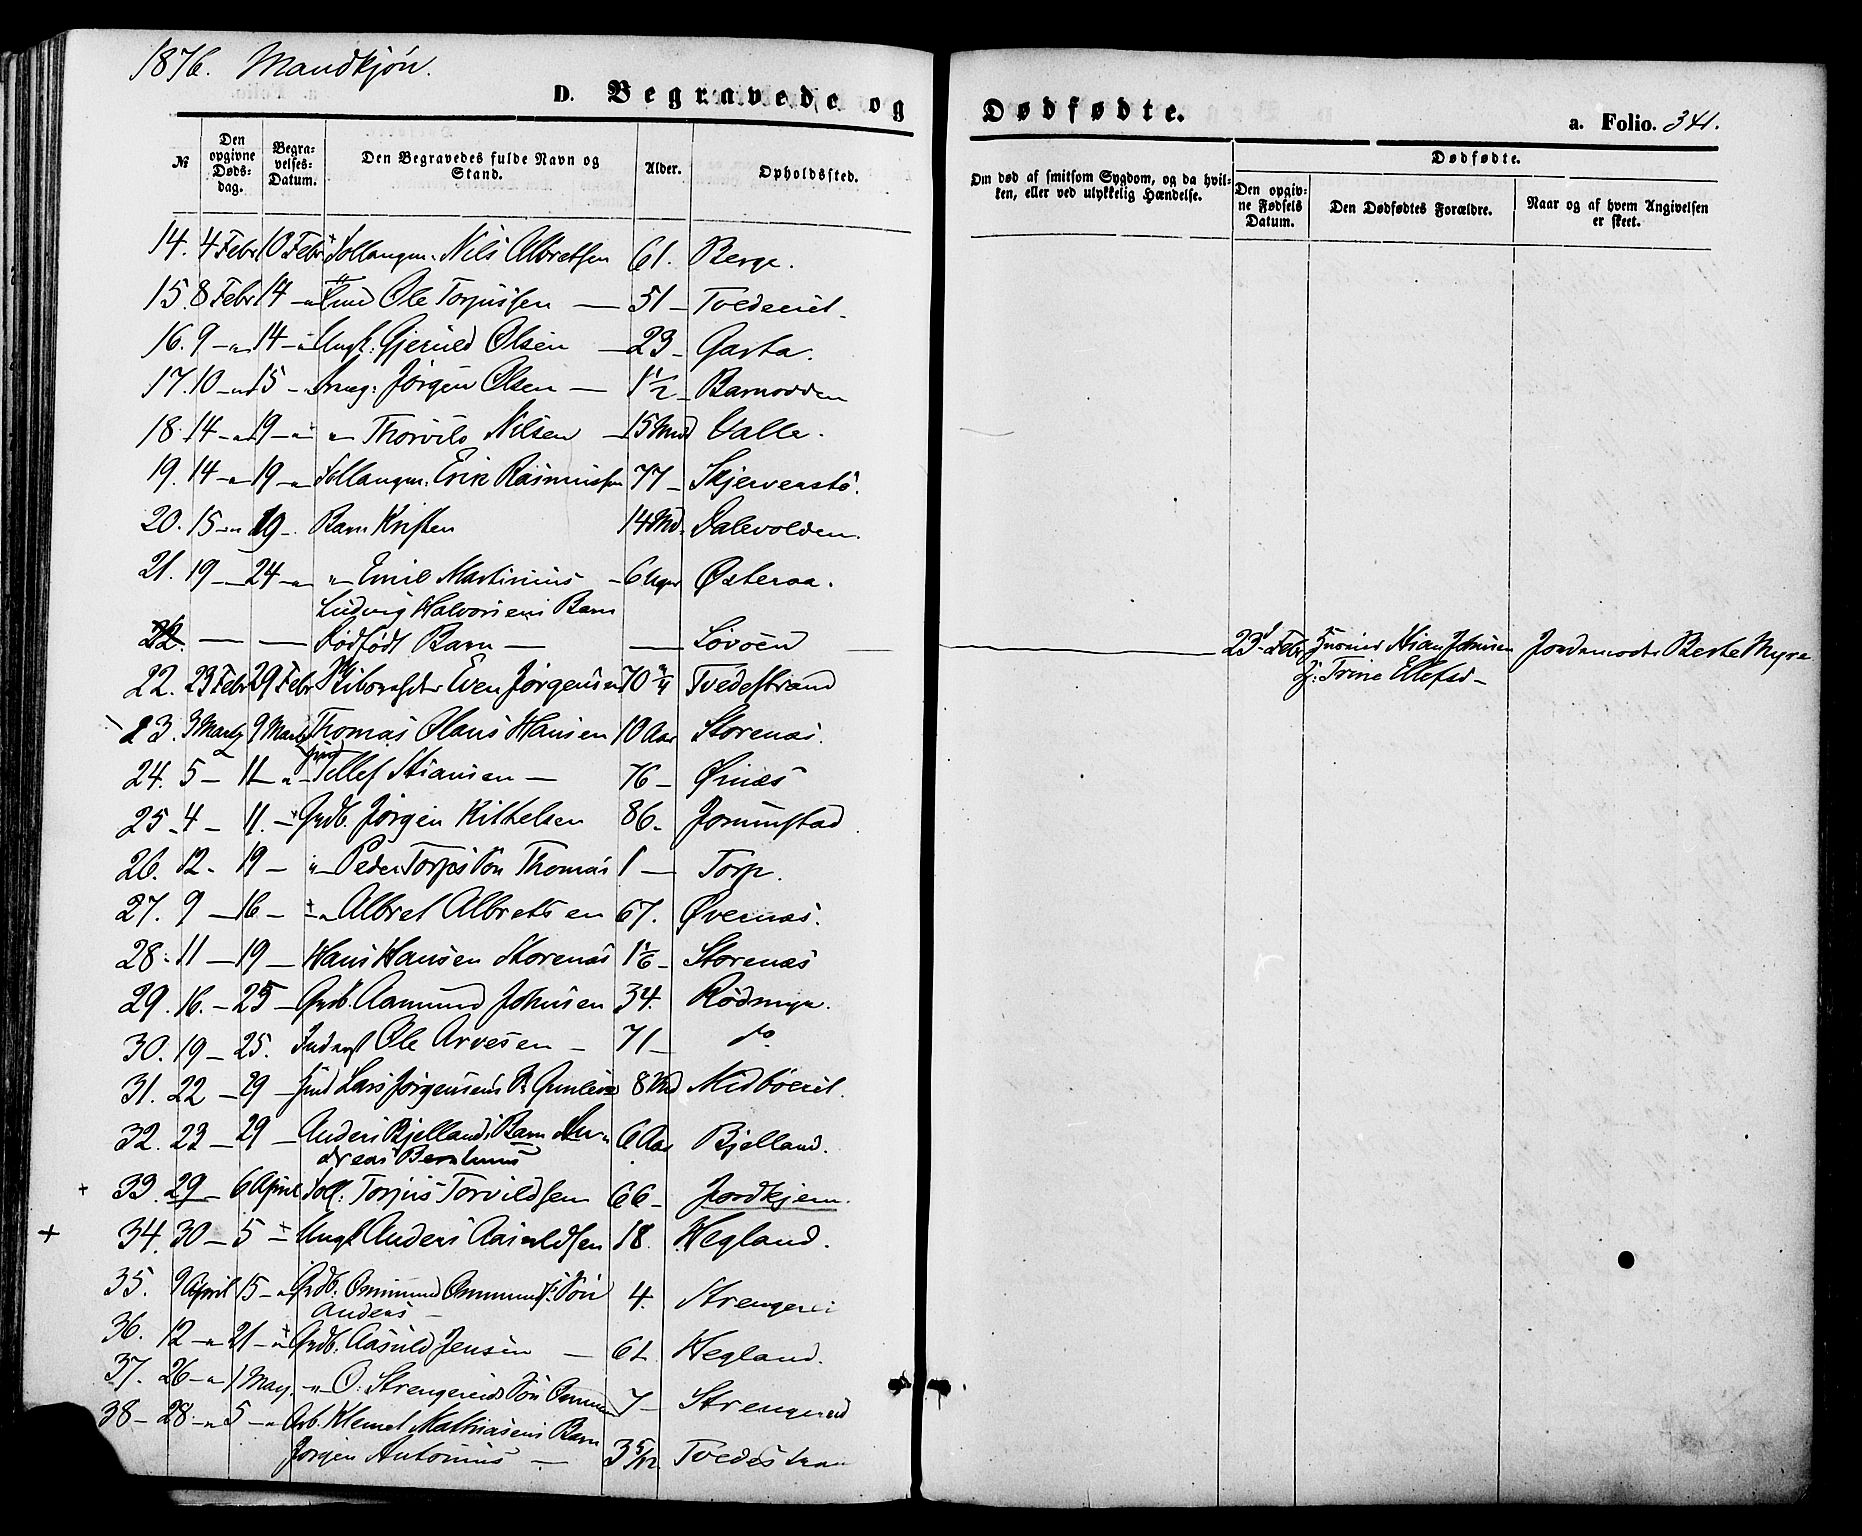 1876. Mandkjøn.
D. Begravede og Dødfødte. a. Folio. 341.
№ Den opgivne Dødsdag. Begravelses-Datum. Den Begravedes fulde Navn og Stand. Alder. Opholdssted. Om død af smitsom Sygdom, og da hvilken, eller ved ulykkelig Hændelse. Dødfødte. Den opgivne Fødsels Datum. Den Dødfødtes Forældre. Naar og af hvem Angivelsen er skeet.
14. 4 Febr 10 Febr Nils Albretsen 61. Berge.
15. 8 Febr 14 - Ole Torjussen — 51 - Tvedereid.
16. 9 - 14 - Ungk: Gjeruld Olsen — 23 - Garta.
17. 10 - 15 - Jørgen Olsen — 1 1/2 - Barnodden
18. 14 - 19 - " Thorvils Nilsen — 15 Mnd Valle.
19. 14 - 19 - Erik Rasmussen 77 - Skjervenstø.
20. 15 - 19 - Barn Kristen 14 Md. Dalevolden.
21. 19 - 24 - " Emil Martinius - 6 Uger Østeraa.
Ludvig Halvorsens Barn
22 — — Dødfødt Barn — — Lovøen 23 Febr Johnsen Jordemoder Berte Myra
Trine Ellefsd -
22. 23 Febr 29 Febr Even Jørgensen 70 3/4 Tvedestrand
23. 3 Marts 9 Marts Thomas Olaus Hansen 10 Aar Storenæs.
24. 5 - 11 - Tellef Stiansen — 76 - Øinæs
25 - 4 - 11. - Grdb. Jørgen Kittelsen 86 - Jorunstad
26. 12 - 19 - " Peder Torps Søn Thomas 1 — Torp.
27. 9 - 16 - " Albret Albretsen 67. Øvernæs.
28. 11 - 19 - Hans Hansen Storenæs 1 1/6 - Storenæs
29. 16. - 25 - Grdb. Aamund Johnsen 34. Rødmyr.
30. 19 - 25. Inderst Ole Arvesen - 71 - do
31. 22 - 29 - Lars Jørgensens B. 8 Md Midbøeid.
32. 23 - 29 - Anders Bjellands Barn An- 6 Aar Bjelland.
dreas Bernhinus
+ 33. 29 - 6 April Soll: Torjus Torvildsen 66 - Jordkjern.
+ 34. 30 - 5 - Ungk Anders Aasuldsen 18. Hegland.
35. 9 April 15 - Grdb. Ommund Ommunds: Søn 4. Strengerei
Anders -
36. 12 - 21 - Grdb. Aasuld Jensen — 61. Hegland.
37. 26 - 1 May. - " O. Strengereids Søn Ommun 7 - Strengereid
38 - 28 - 5 - Klemet Mathiasens Barn
Jørgen Antonius — 3 5/12 Tvedestran